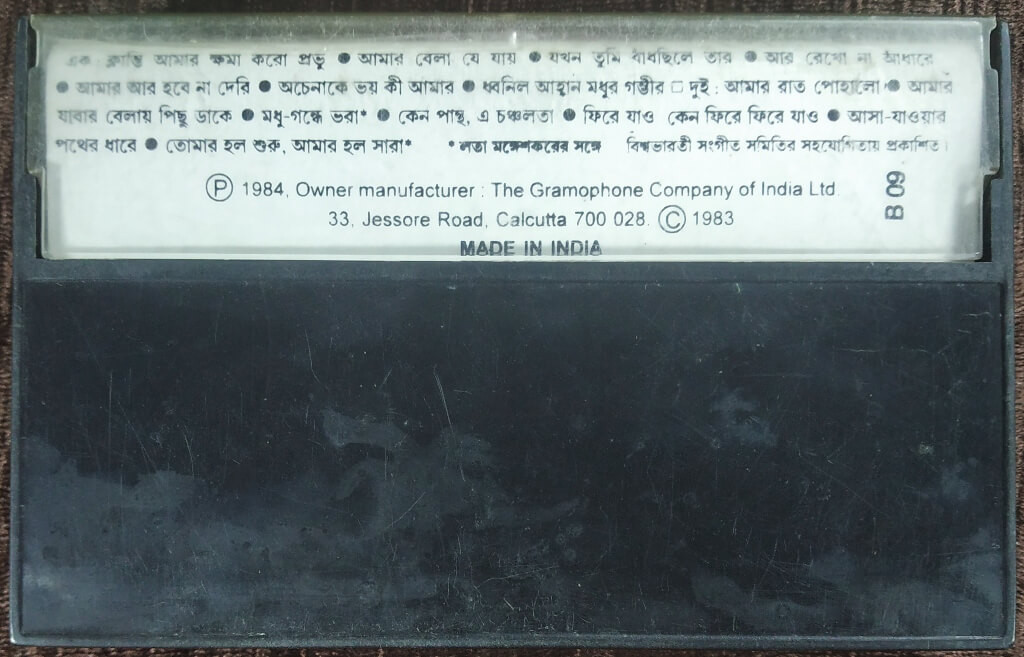 এক: ক্লান্তি আমার ক্ষমা করো প্রভু ● আমার বেলা যে যায় ● যখন তুমি বাঁধছিলে তার ● আর রেখো না আঁধারে
● আমার আর হবে না দেরি ● অচেনাকে ভয় কী আমার ● ধ্বনিল আহ্বান মধুর গম্ভীর □ দুই : আমার রাত পোহালো ● আমার
যাবার বেলায় পিছু ডাকে ● মধু-গন্ধে ভরা* ● কেন পান্থ, এ চঞ্চলতা ● ফিরে যাও কেন ফিরে ফিরে যাও ● আসা-যাওয়ার
পথের ধারে ● তোমার হল শুরু, আমার হল সারা* * লতা মঙ্গেশকরের সঙ্গে বিশ্বভারতী সংগীত সমিতির সহযোগিতায় প্রকাশিত।
Ⓟ 1984, Owner manufacturer : The Gramophone Company of India Ltd.
33, Jessore Road, Calcutta 700 028. Ⓒ 1983
MADE IN INDIA
B 09